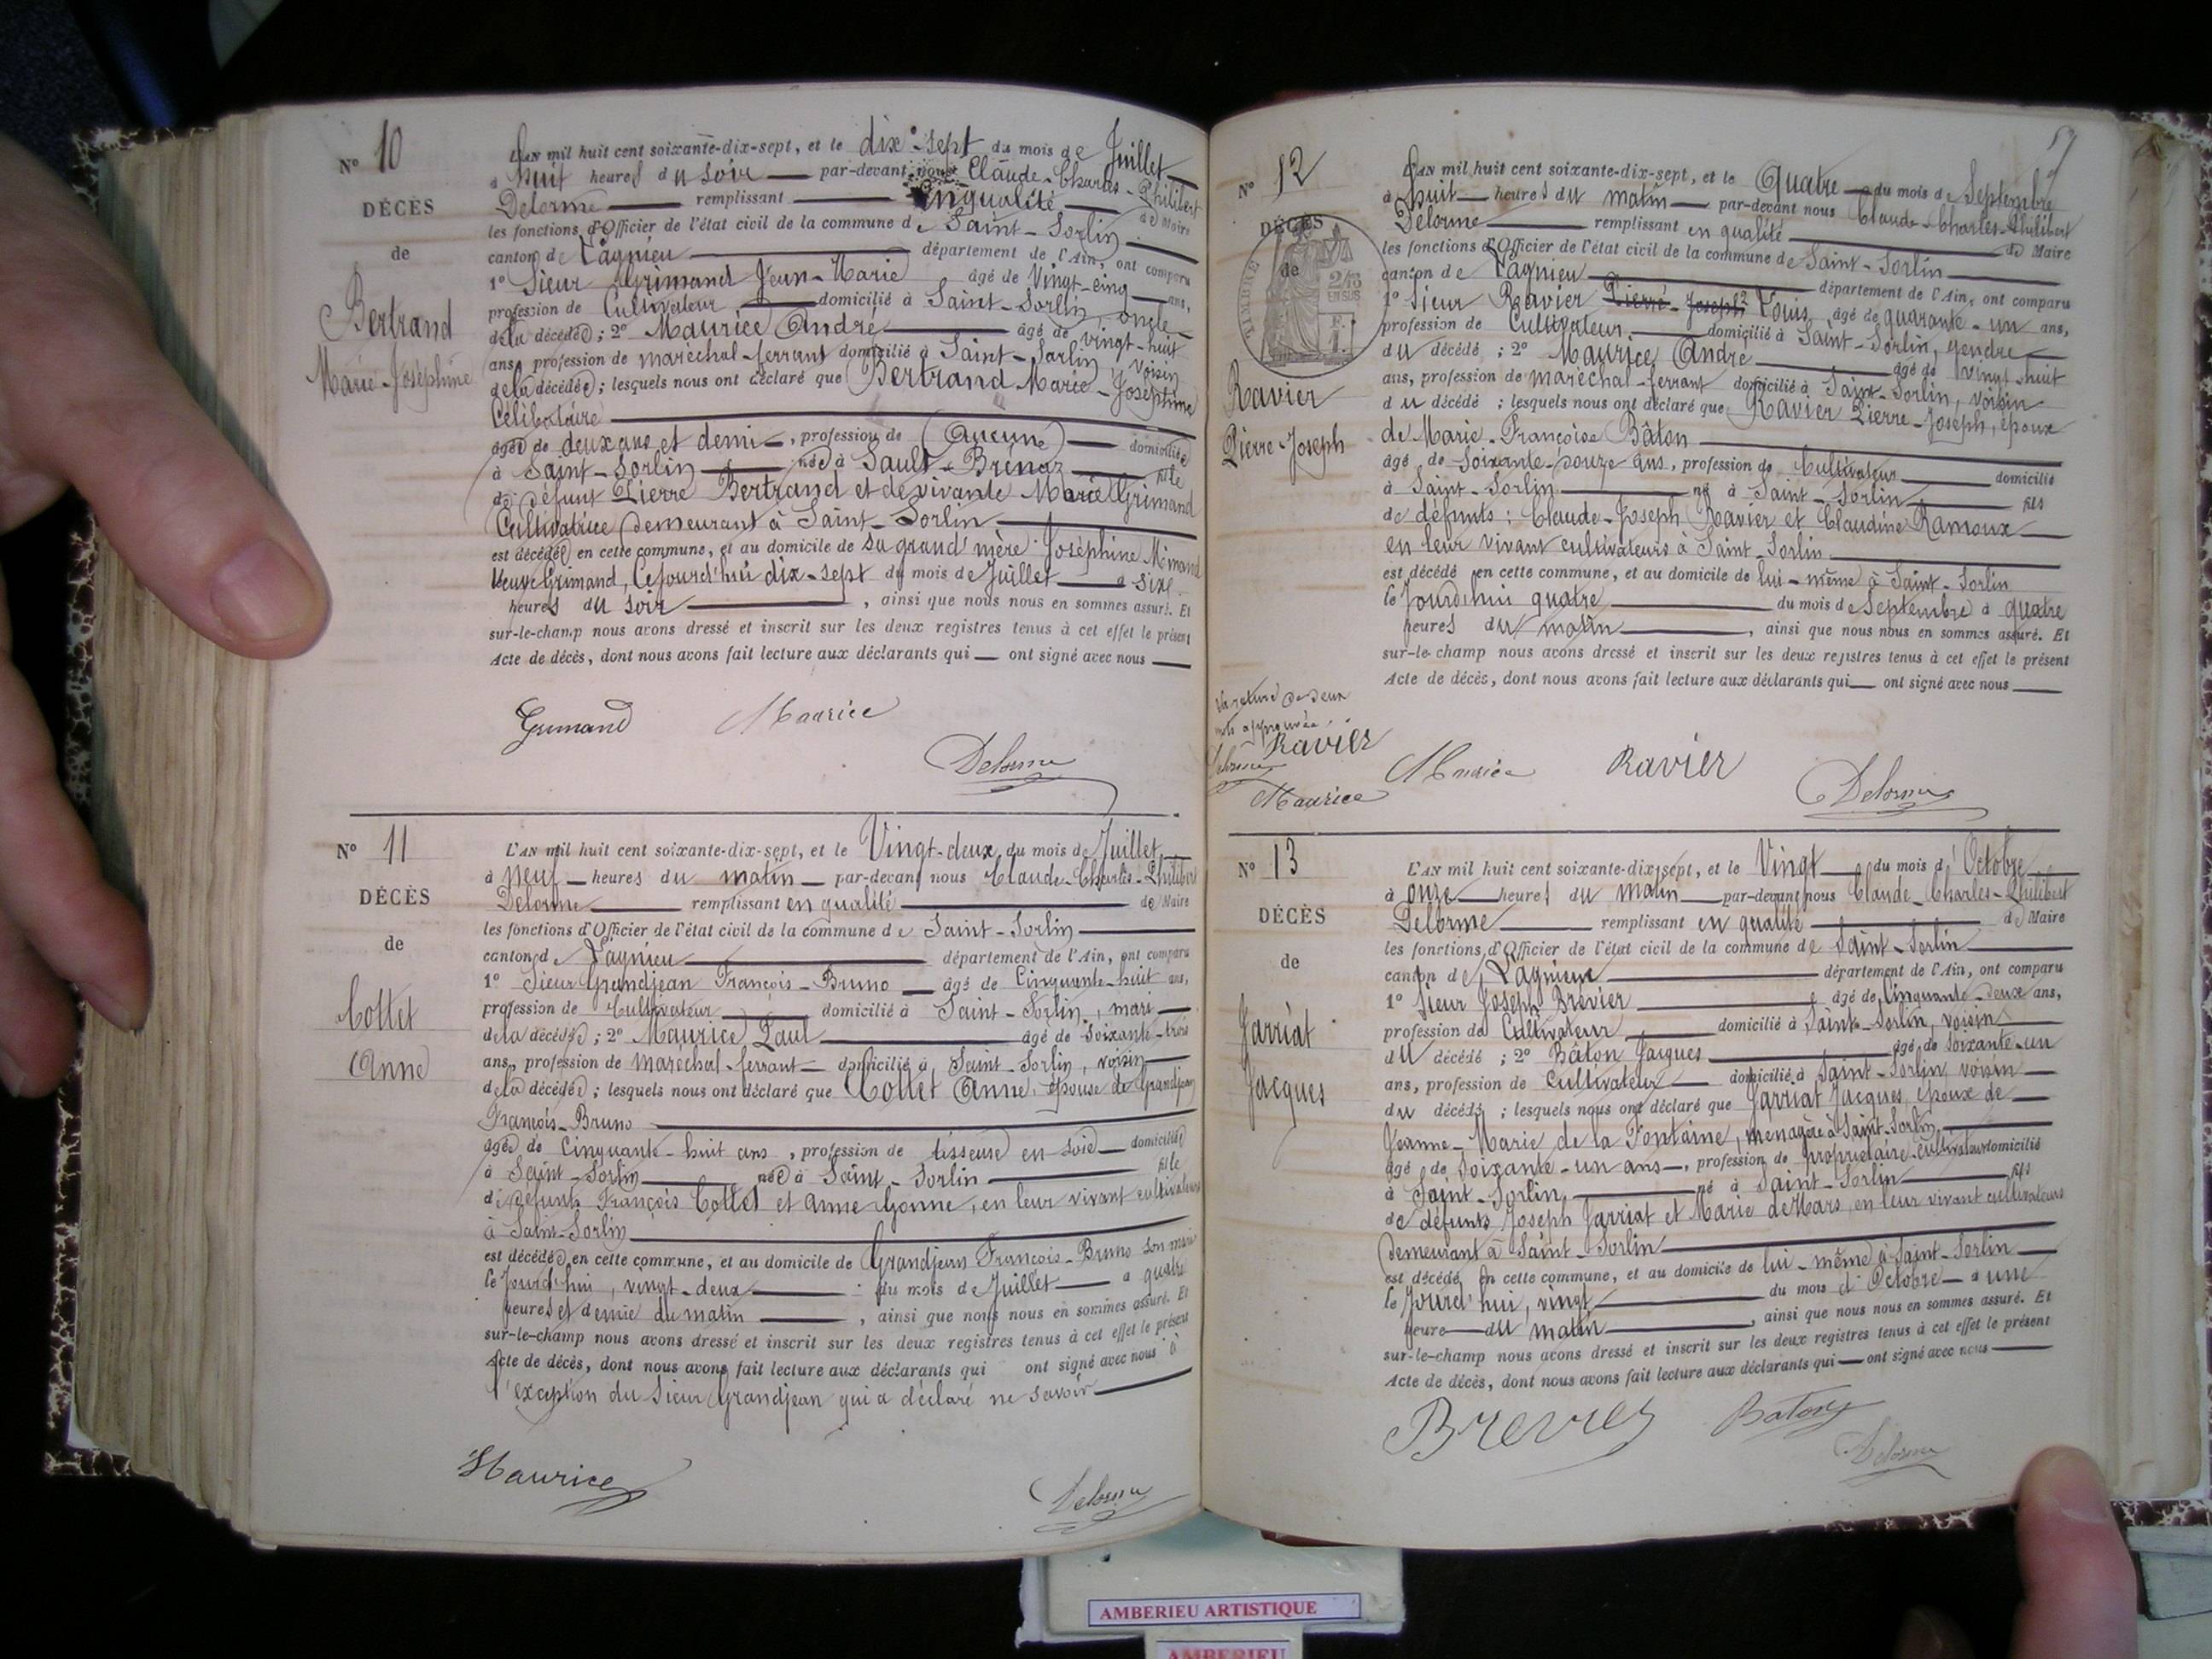 N° 10
DÉCÈS
de
Bertrand
Marie-Joséphine
L'AN mil huit cent soixante-dix-sept, et le dix-sept du mois de Juillet
à huit heures du soir par-devant nous Claude-Charles-Philibert
Delorme remplissant en qualité de Maire
les fonctions d'Officier de l'état civil de la commune de Saint-Sorlin
canton de Lagnieu département de l'Ain, ont comparu
1° Sieur Grimand Jean-Marie âgé de Vingt-cinq ans,
profession de Cultivateur domicilié à Saint-Sorlin, oncle
de la décédée ; 2° Maurice André âgé de vingt-huit
ans, profession de maréchal-ferrant domicilié à Saint-Sorlin, voisin
de la décédée ; lesquels nous ont déclaré que Bertrand Marie-Joséphine
Célibataire
âgée de deux ans et demi, profession de (Aucune) domiciliée
à Saint-Sorlin née à Sault-Brénaz fille
de défunt Pierre Bertrand et de vivante Marie Grimand
Cultivatrice demeurant à Saint-Sorlin
est décédée en cette commune, et au domicile de sa grand'mère Joséphine Mimand
Veuve Grimand, Cejourd'hui dix-sept du mois de Juillet à six
heures du soir, ainsi que nous nous en sommes assuré. Et
sur-le-champ nous avons dressé et inscrit sur les deux registres tenus à cet effet le présent
Acte de décès, dont nous avons fait lecture aux déclarants qui ont signé avec nous
Grimand Maurice
Delorme
N° 11
DÉCÈS
de
Cottet
Anne
L'AN mil huit cent soixante-dix-sept, et le Vingt-deux du mois de Juillet
à neuf heures du matin par-devant nous Claude-Charles-Philibert
Delorme remplissant en qualité de Maire
les fonctions d'Officier de l'état civil de la commune de Saint-Sorlin
canton de Lagnieu département de l'Ain, ont comparu
1° Sieur Grandjean François-Bruno âgé de Cinquante-huit ans,
profession de Cultivateur domicilié à Saint-Sorlin, mari
de la décédée ; 2° Maurice Paul âgé de Soixante-trois
ans, profession de maréchal-ferrant domicilié à Saint-Sorlin, voisin
de la décédée ; lesquels nous ont déclaré que Cottet Anne, épouse de Grandjean
François-Bruno
âgée de Cinquante-huit ans, profession de tisseuse en soie domiciliée
à Saint-Sorlin née à Saint-Sorlin fille
de défunts François Cottet et Anne Gonne, en leur vivant cultivateurs
à Saint-Sorlin
est décédée en cette commune, et au domicile de Grandjean François-Bruno son mari
le Jourd'hui, vingt-deux du mois de Juillet à quatre
heures et demie du matin, ainsi que nous nous en sommes assuré. Et
sur-le-champ nous avons dressé et inscrit sur les deux registres tenus à cet effet le présent
Acte de décès, dont nous avons fait lecture aux déclarants qui ont signé avec nous à
l'exception du Sieur Grandjean qui a déclaré ne savoir
Maurice
Delorme
N° 12
DÉCÈS
de
TIMBRE
2/10
EN SUS
Ravier
Pierre-Joseph
L'AN mil huit cent soixante-dix-sept, et le Quatre du mois de Septembre
à huit heures du matin par-devant nous Claude-Charles-Philibert
Delorme remplissant en qualité de Maire
les fonctions d'Officier de l'état civil de la commune de Saint-Sorlin
canton de Lagnieu département de l'Ain, ont comparu
1° Sieur Ravier Pierre-Joseph Louis, âgé de quarante-un ans,
profession de Cultivateur domicilié à Saint-Sorlin, gendre
du décédé ; 2° Maurice André âgé de vingt-huit
ans, profession de maréchal-ferrant domicilié à Saint-Sorlin, voisin
du décédé ; lesquels nous ont déclaré que Ravier Pierre-Joseph, époux
de Marie-Françoise Bâton
âgé de Soixante-douze ans, profession de Cultivateur domicilié
à Saint-Sorlin né à Saint-Sorlin fils
de défunts : Claude-Joseph Ravier et Claudine Ramoux
en leur vivant cultivateurs à Saint-Sorlin
est décédé en cette commune, et au domicile de lui-même à Saint-Sorlin
le Jourd'hui quatre du mois de Septembre à quatre
heures du matin, ainsi que nous nous en sommes assuré. Et
sur-le-champ nous avons dressé et inscrit sur les deux registres tenus à cet effet le présent
Acte de décès, dont nous avons fait lecture aux déclarants qui ont signé avec nous
la rature de deux
mots approuvée
Ravier
Delorme
Maurice
Maurice Ravier Delorme
N° 13
DÉCÈS
de
Jarriat
Jacques
L'AN mil huit cent soixante-dix-sept, et le Vingt du mois d'Octobre
à onze heures du matin par-devant nous Claude-Charles-Philibert
Delorme remplissant en qualité de Maire
les fonctions d'Officier de l'état civil de la commune de Saint-Sorlin
canton de Lagnieu département de l'Ain, ont comparu
1° Sieur Joseph Brevier âgé de Cinquante-deux ans,
profession de Cultivateur domicilié à Saint-Sorlin, voisin
du décédé ; 2° Bâton Jacques âgé de soixante-un
ans, profession de Cultivateur domicilié à Saint-Sorlin voisin
du décédé ; lesquels nous ont déclaré que Jarriat Jacques, époux de
Jeanne-Marie de la Fontaine, ménagère à Saint-Sorlin
âgé de Soixante-un ans, profession de propriétaire-cultivateur domicilié
à Saint-Sorlin né à Saint-Sorlin fils
de défunts Joseph Jarriat et Marie de Mars, en leur vivant cultivateurs
demeurant à Saint-Sorlin
est décédé en cette commune, et au domicile de lui-même à Saint-Sorlin
le Jourd'hui, vingt du mois d'Octobre à une
heure du matin, ainsi que nous nous en sommes assuré. Et
sur-le-champ nous avons dressé et inscrit sur les deux registres tenus à cet effet le présent
Acte de décès, dont nous avons fait lecture aux déclarants qui ont signé avec nous
Brevier Baton
Delorme
AMBERIEU ARTISTIQUE
AMBERIEU